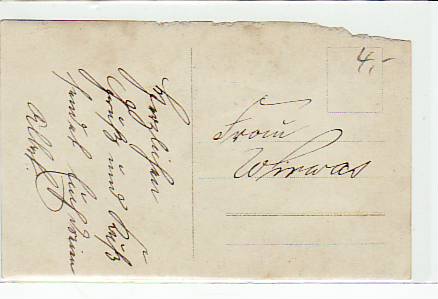 Herzlichen
Gruß und Kuß
sendet
Albert
4,-
Frau
Wirwas